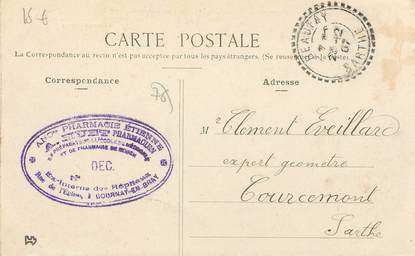 15 €
CARTE POSTALE
La Correspondance au recto n'est pas acceptée par tous les pays étrangers. (Se renseigner à la Poste).
Correspondance
Adresse
BEAUFAY
SARTHE
ANCne PHARMACIE ÉTIENNE
A. HUET PHARMACIEN
ET DE PHARMACIE DE ROUEN
N°
DEC.
Ex-Interne des Hôpitaux
Rue de l'Église, à GOURNAY-EN-BRAY
Mr Clément Eveillard
expert géomètre
Courcemont
Sarthe